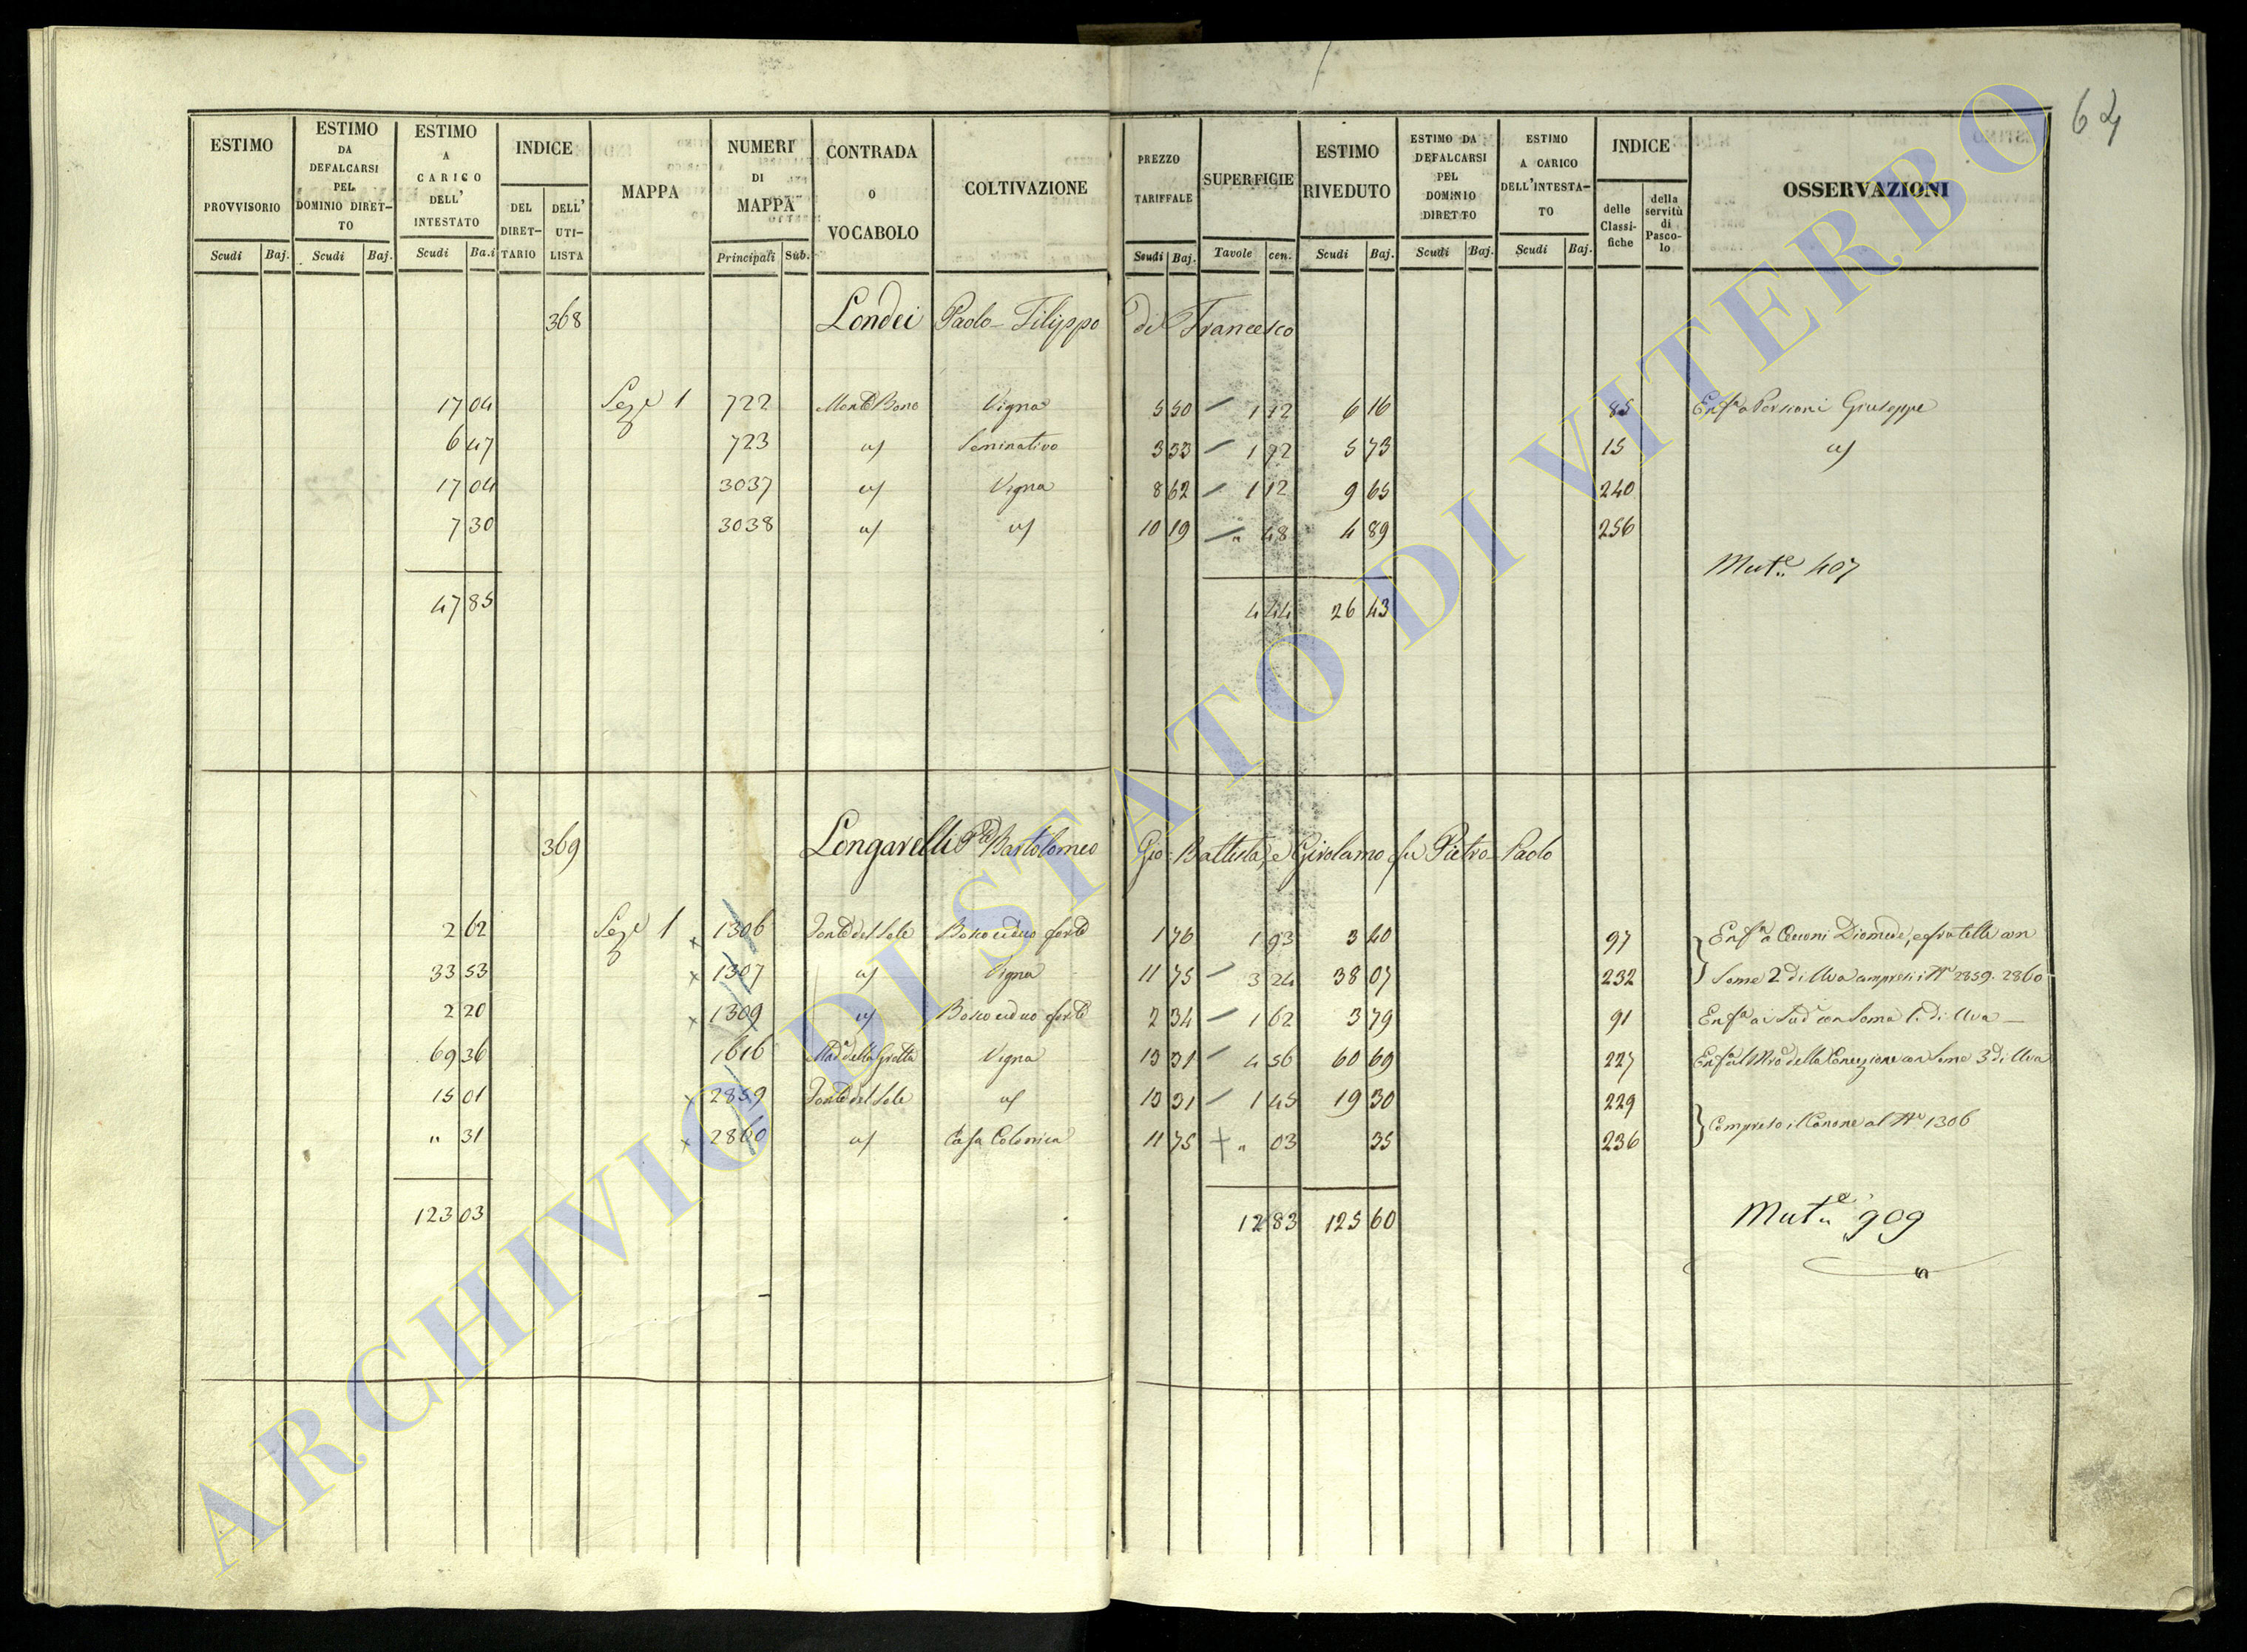 64
ESTIMO PROVVISORIO Scudi Baj.
ESTIMO DA DEFALCARSI PEL DOMINIO DIRETTO Scudi Baj.
ESTIMO A CARICO DELL' INTESTATO Scudi Ba.i
INDICE DEL DIRETTARIO DELL' UTILISTA
MAPPA
NUMERI DI MAPPA Principali Sub.
CONTRADA O VOCABOLO
COLTIVAZIONE
PREZZO TARIFFALE Scudi Baj.
SUPERFICIE Tavole cen.
ESTIMO RIVEDUTO Scudi Baj.
ESTIMO DA DEFALCARSI PEL DOMINIO DIRETTO Scudi Baj.
ESTIMO A CARICO DELL'INTESTATO Scudi Baj.
INDICE delle Classifiche della servitù di Pascolo
OSSERVAZIONI
368 Londei Paolo-Filippo di Francesco
17 04 Seze 1 722 Monte Bono Vigna 5 50 1 12 6 16 85 Enfa a Persiani Giuseppe
6 47 723 a/ Seminativo 3 33 1 72 5 73 15 a/
17 04 3037 a/ Vigna 8 62 1 12 9 65 240
7 30 3038 a/ a/ 10 19 " 48 4 89 256
Mute 407
47 85 4 44 26 43
369 Longarelli Pd Bartolomeo Gio-Battista, e Girolamo fu Pietro-Paolo
2 62 Seze 1 x 1306 Fonte del Sole Bosco ceduo forte 1 76 1 93 3 40 97 Enfa a Cecconi Diomede, e fratelli con
33 53 x 1307 a/ Vigna 11 75 3 24 38 07 232 Some 2 di Uva compresi i Nri 2859. 2860
2 20 x 1309 a/ Bosco ceduo forte 2 34 1 62 3 79 91 Enfa ai Sudi con Soma 1. di Uva
69 36 1616 Mada della Grotta Vigna 13 31 4 56 60 69 227 Enfa della Concezione con Some 3 di Uva
15 01 x 2859 Fonte del Sole a/ 13 31 1 45 19 30 229
" 31 x 2860 a/ Casa Colonica 11 75 " 03 35 236 Compreso il Canone al No 1306
123 03 12 83 125 60 Mute 909
ARCHIVIO DI STATO DI VITERBO